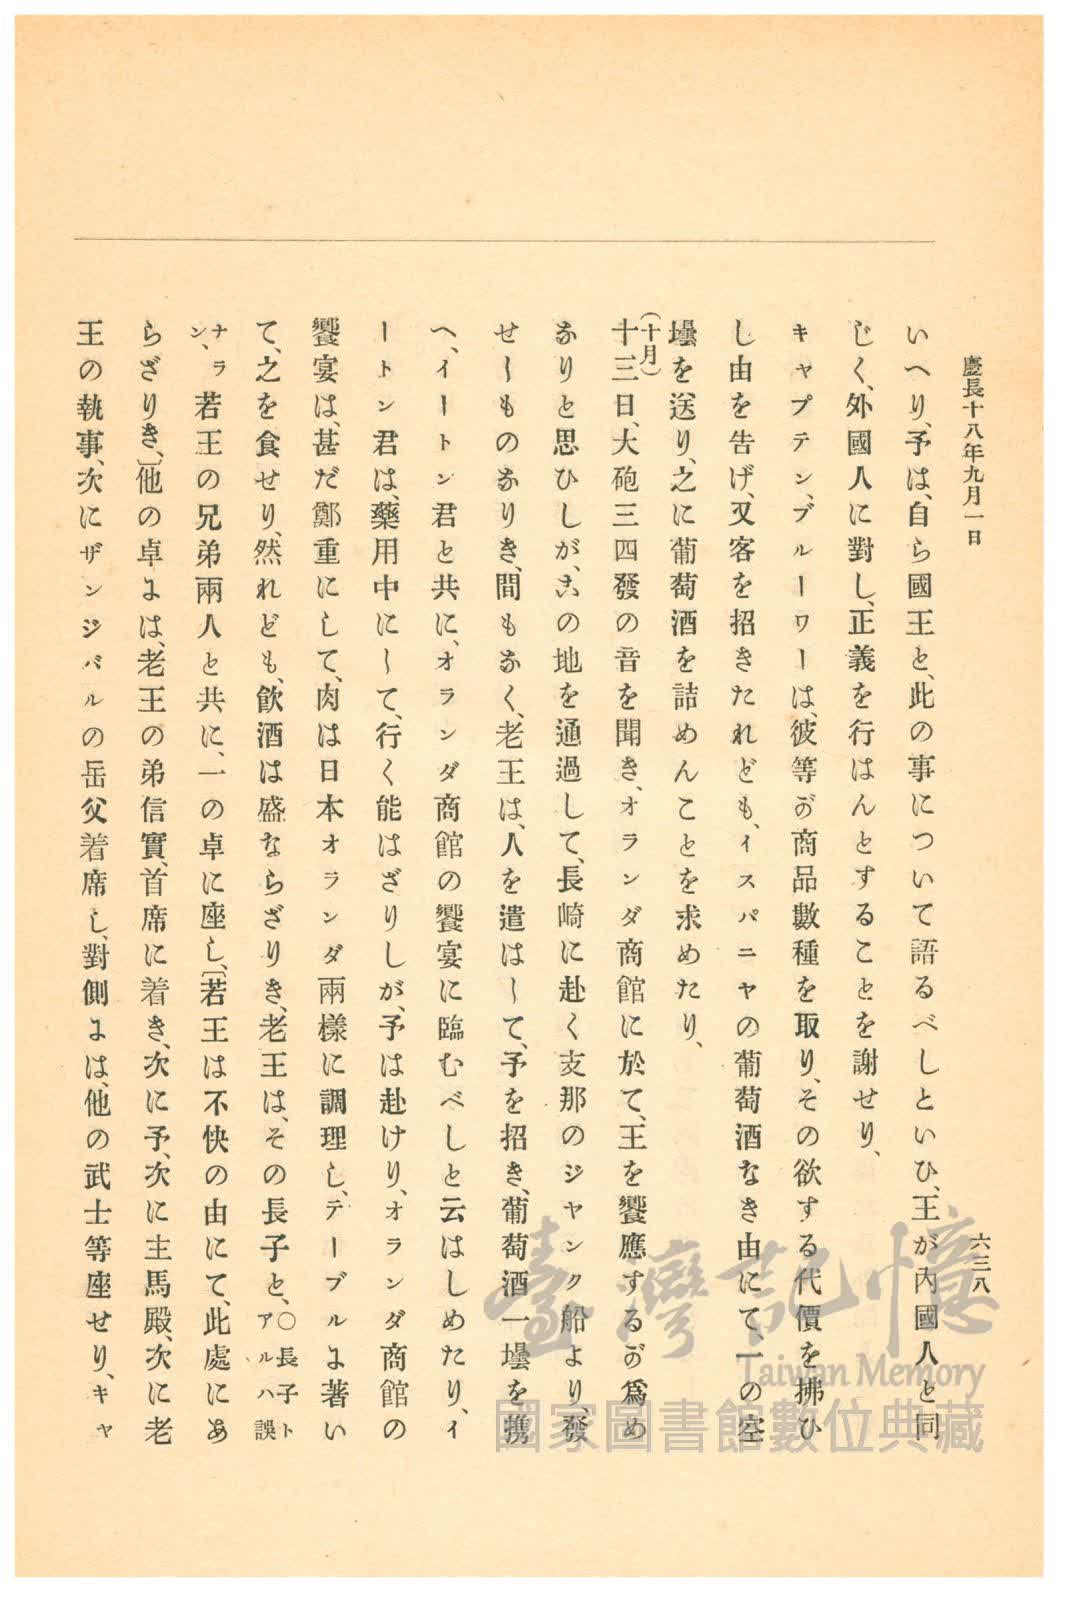 慶長十八年九月一日
六三八
いへり、予は、自ら國王と、此の事について語るべしといひ、王が內國人と同
じく、外國人に對し、正義を行はんとすることを謝せり、
キャプテン、ブルーワーは、彼等が商品數種を取り、その欲する代價を拂ひ
し由を吿げ、又客を招きたれども、イスパニヤの葡萄酒なき由にて、一の空
壜を送り、之に葡萄酒を詰めんことを求めたり、
(十月)
十三日、大砲三四發の音を聞き、オランダ商館に於て、王を饗應するが爲め
なりと思ひしが、この地を通過して、長崎に赴く支那のジャンク船より、發
せしものなりき、間もなく、老王は、人を遣はして、予を招き、葡萄酒一壜を携
へ、イートン君と共に、オランダ商館の饗宴に臨むべしと云はしめたり、イ
ートン君は、藥用中にして、行く能はざりしが、予は赴けり、オランダ商館の
饗宴は、甚だ鄭重にして、肉は日本オランダ兩樣に調理し、テーブルに著い
て、之を食せり、然れども、飮酒は盛ならざりき、老王は、その長子と、○長子トアルハ誤
ナラン、若王の兄弟兩人と共に、一の卓に座し、〔若王は不快の由にて、此處にあ
らざりき、〕他の卓には、老王の弟信實、首席に着き、次に予、次に主馬殿、次に老
王の執事、次にザンジバルの岳父着席し、對側には、他の武士等座せり、キャ
臺灣記憶
Taiwan Memory
國家圖書館數位典藏